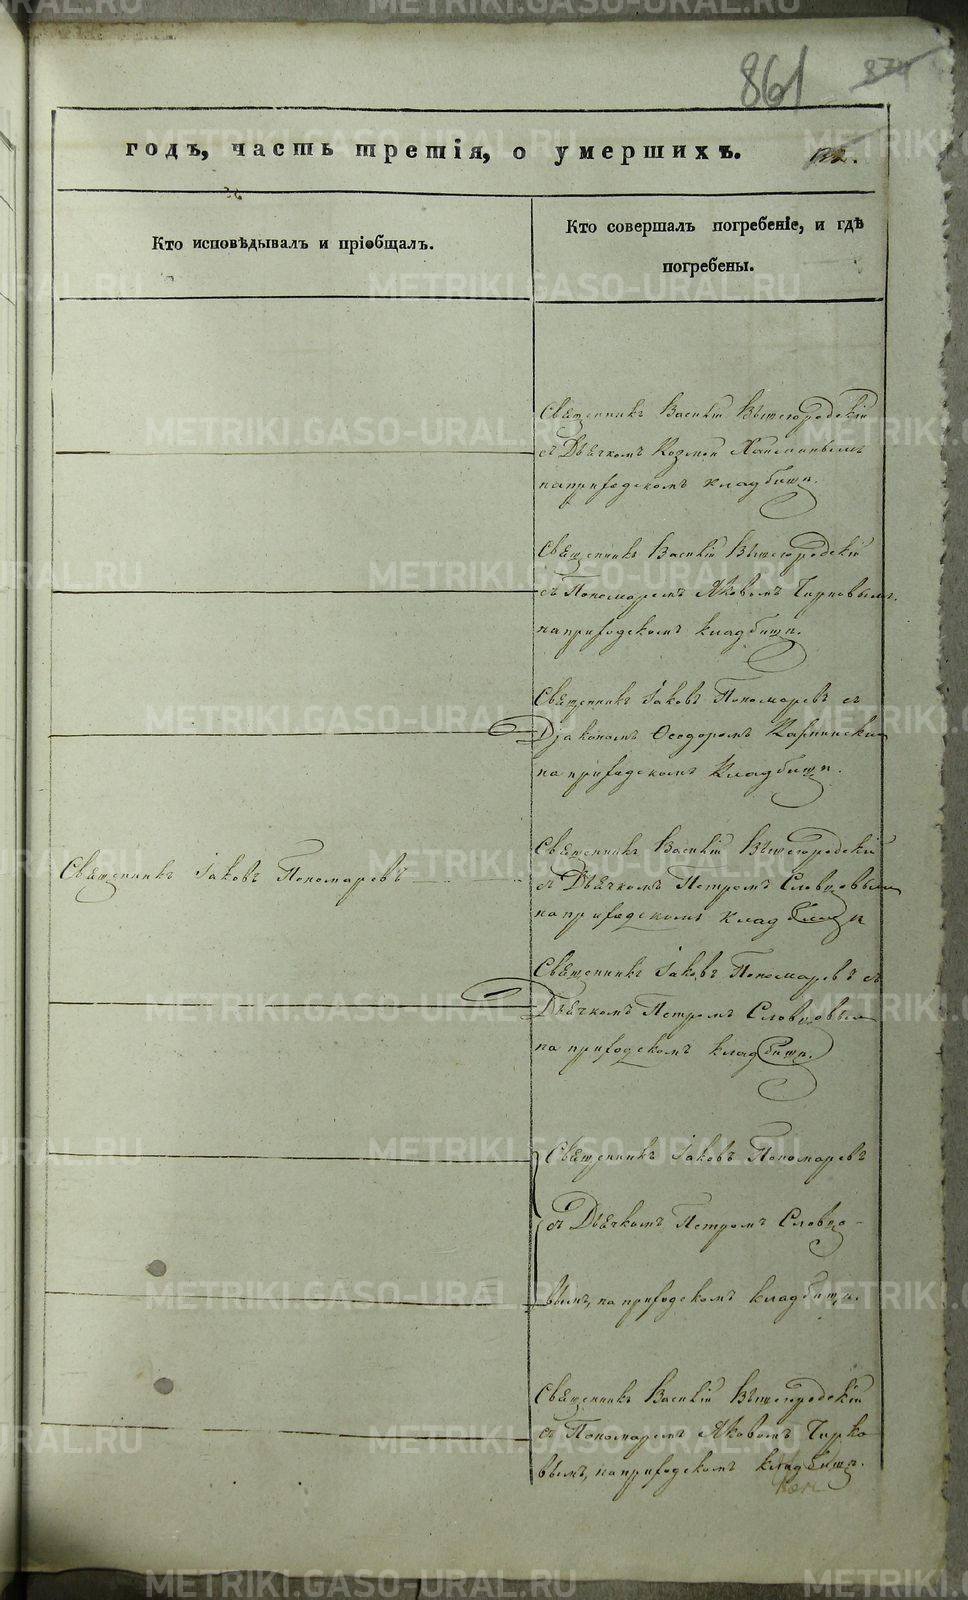 861
874
годъ, часть третія, о умершихъ.
132.
Кто исповѣдывалъ и пріобщалъ.
Кто совершалъ погребеніе, и гдѣ
погребены.
Священникъ Василій Вышегородскій
съ Дьячкомъ Козмой
на приходскомъ кладбищѣ.
Священникъ Василій Вышегородскій
съ Пономаремъ Яковомъ Чирковымъ.
на приходскомъ кладбищѣ.
Священникъ Іаковъ Пономаревъ съ
Діакономъ Ѳеодоромъ Карпинскимъ
на приходскомъ кладбищѣ.
Священникъ Іаковъ Пономаревъ
Священникъ Василій Вышегородскій
съ Дьячкомъ Петромъ Словцовымъ
на приходскомъ кладбищѣ
Священникъ Іаковъ Пономаревъ съ
Дьячкомъ Петромъ Словцовымъ
на приходскомъ кладбищѣ.
Священникъ Іаковъ Пономаревъ
съ Дьячкомъ Петромъ Словцо-
вымъ, на приходскомъ кладбищѣ.
Священникъ Василій Вышегородскій
съ Пономаремъ Яковомъ Чирко-
вымъ, на приходскомъ кладбищѣ.
METRIKI.GASO-URAL.RU